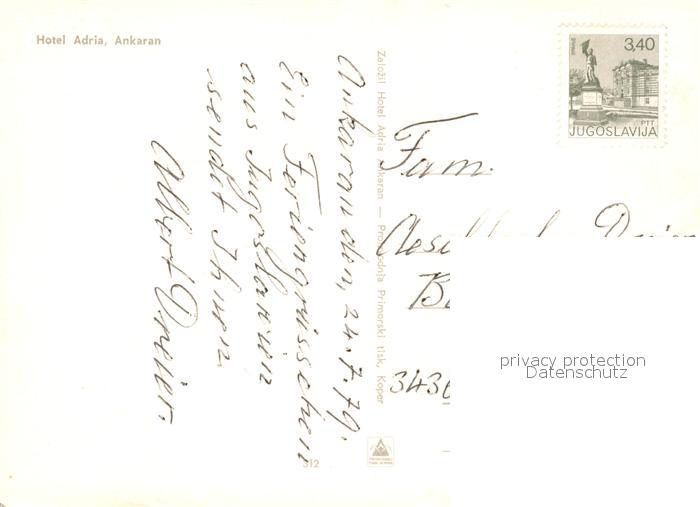 Hotel Adria, Ankaran
Ankaran den, 24.7.79.
Ein Feriengrüsschen
aus Jugoslavien
sendet Ihnen
Albert Dreier.
Založil Hotel Adria Ankaran — Proizvodnja Primorski tisk, Koper
312
3,40
PTT
JUGOSLAVIJA
Fam.
privacy protection
Datenschutz